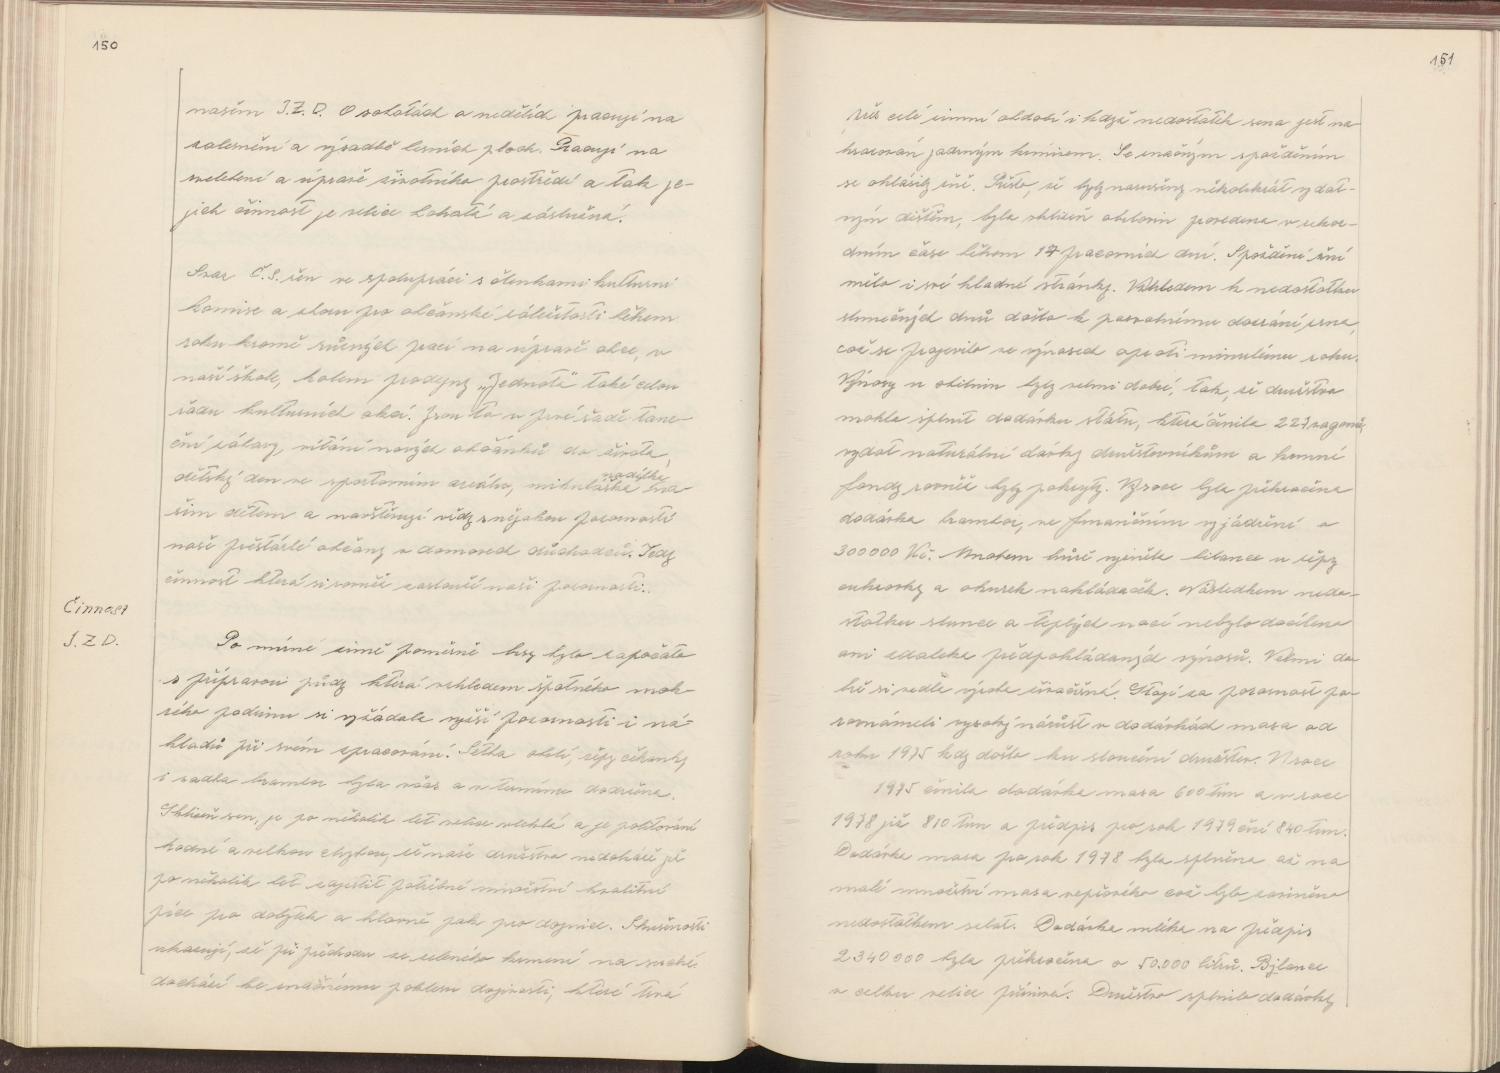 150
našem J.Z.D. O sobotách a nedělích pracují na
zalesnění a výsadbě lesních ploch. Pracují na
zvelebení a úpravě životního prostředí a tak je-
jich činnost je velice bohatá a záslužná.
Svaz Č.S. žen ve spolupráci s členkami kulturní
komise a sboru pro občanské záležitosti během
roku kromě různých prací na úpravě obce, v
naší škole, kolem prodejny „Jednota" také celou
řadu kulturních akcí. Jsou to v prvé řadě tane-
ční zábavy, vítání nových občánků do života,
dětský den ve sportovním areálu, mikulášská na-
nadílka
šim dětem a navštěvují vždy s nějakou pozorností
naše přestárlé občany v domovech důchodců. Tedy
činnost která si rovněž zaslouží naší pozornosti.
Činnost
J.Z.D.
Po mírné zimě poměrně brzy bylo započato
s přípravou půdy která vzhledem špatného mok-
rého podzimu si vyžádala vyšší pozornosti i ná-
kladů při svém zpracování. Setba obilí, řepy čekanky
i sadba brambor byla včas a v termínu dodržena.
Sklizeň sen, je po několik let velice vleklá a je politování
hodné a velkou chybou, že naše družstvo nedokáže již
po několik let zajistit potřebné množství kvalitní
píce pro dobytek a hlavně pak pro dojnice. Zkušenosti
ukazují, že při přechodu ze zeleného krmení na suché
dochází ke značnému poklesu dojivosti, které trvá
151
přes celé zimní období i když nedostatek sena jest na-
hrazován jadrným krmivem. Se značným zpožděním
se ohlásily žně. Přesto, že byly narušeny několikrát vydat-
ným deštěm, byla sklizeň obilovin provedena v rekor-
dním čase během 17 pracovních dní. Zpoždění žní
mělo i své kladné stránky. Vzhledem k nedostatku
slunečných dnů došlo k pozvolnému dozrání zrna,
což se projevilo ve výnosech oproti minulému roku.
Výnosy u obilnin byly velmi dobré, tak, že družstvo
mohlo splnit dodávku státu, která činila 227 vagonů
vydat naturální dávky družstevníkům a krmné
fondy rovněž byly pokryty. Vysoce byla překročena
dodávka brambor, ve finančním vyjádření o
300000 Kč. Mnohem hůře vyzněla bilance u řepy
cukrovky a okurek nakládaček. Následkem nedo-
statku slunce a teplých nocí nebylo docíleno
ani zdaleka předpokládaných výnosů. Velmi do-
bře si vedla výroba živočišná. Stojí za pozornost po-
rovnámeli vysoký nárůst v dodávkách masa od
roku 1975 kdy došlo ku sloučení družstev. V roce
1975 činila dodávka masa 600 tun a v roce
1978 již 810 tun a předpis pro rok 1979 činí 840 tun.
Dodávka masa pro rok 1978 byla splněna až na
malé množství masa vepřového což bylo zaviněno
nedostatkem selat. Dodávka mléka na předpis
2340000 byla překročena o 50.000 litrů. Bylance
v celku velice příznivá. Družstvo splnilo dodávky